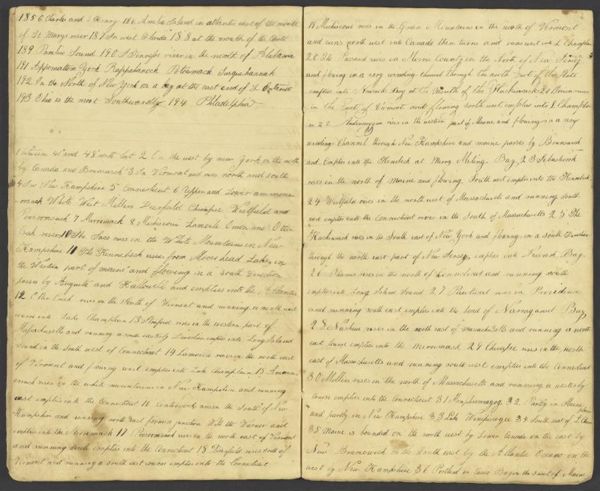 185 6 Clarks and S Mary. 187 Amelia Island in atlantic west of the mouth
of St Marys river 188 In west Florida 188 at the mouth of the
189 Pamlico Sound 190 in the north of Alabama
191 Appomattox York Rappahanock Potowmack Susquehannah
192 In the North of New York on a bay at the east end of L Ontario
193 Ohio is the most Southwardly 194 Philadelphia
1 between 41 and 48 north Lat 2 On the west by new York on the north
by Canada and Brunswick 3 In Vermont and runs north and south
4 In New Hampshire 5 Conneticut 6 upper and Lower ammonoo
suck White West Millers Deerfield Chicapee Westfield and
Farmington 7 Merrimack 8 Michiscoui Lamoile Onion and Otter
Creek river 10 The Saco rises in the White Mountains in New
Hampshire 11 The Kennebeck rises from Moosehead Lake, in
the Western part of maine and flowing in a south direction
passes by Augusta and Hallowell and empties into the Atlantic
12 Otter Creek rises in the South of Vermont and running a north west
course into Lake Champlain 13 rises in the western part of
Massachusetts and running a south westerly direction empties into Long Island
Sound in the south west of Conneticut 14 Lamoile rises in the north east
of Vermont and flowing west empties into Lake Champlain 15
rises in the white mountains in New Hampshire and running
west empties into the Conneticut 16 contoocook rises in the South of New
Hampshire and running north east forms a junction with the Warner and
empties into the Merrimack 17 Passumsick rises in the north east of Vermont
and running South empties into the Conneticut 18 Deerfield rises south of
Vermont and running a south east course empties into the Conneticut
19 Michiscoui rises in the Green Mountains in the north of Vermont
and runs north west into Canada then turns and runs west into L Champlain
20 The Passaic rises in Morris County in the North of New Jersey
and flowing in a very winding channel through the north East of the State
empties into Newark Bay at the mouth of the Hackinsack 21 Onion rises
in the East of Vermont and flowing north west empties into L Champlain
22 rises in the western part of Maine and flowing in a very
winding Channel through New Hampshire and maine passes by Brunswick
and Empties into the Kennebeck at Merry Meeting Bay, 23 Sebasticook
rises in the north of maine and flowing South west empties into the Kennebeck
24 Westfield rises in the north west of Massachusetts and running south
east empties into the Conneticut river in the South of Massachusetts 25 The
Hackinsack rises in the South east of New York and flowing in a south Direction
through the north east part of New Jersey, empties into Newark Bay.
26 Thames rises in the north of Conneticut and running south
empties into Long Island Sound 27 Pawtucket rises in Providence
and running south east empties into the head of Narraganset Bay,
28 Nashua rises in the north east of massachusetts and running a north
east course empties into the Merrimack 29 Chicapee rises in the north
east of Massachusetts and running south west empties into the Conneticut
30 Millers rises in the north of Massachusetts and running a westerly
course empties into the Conneticut 31 Memphremagog 32 Partly in Maine
and partly in New Hampshire 33 Lake Winnipiseogee 34 South east of L Cham
35 Maine is bounded on the north west by Lower Canada on the east by
New Brunswick on the South east by the Atlantic Ocean on the
west by New Hampshire 36 Portland in Casco Bay in the S west of Maine